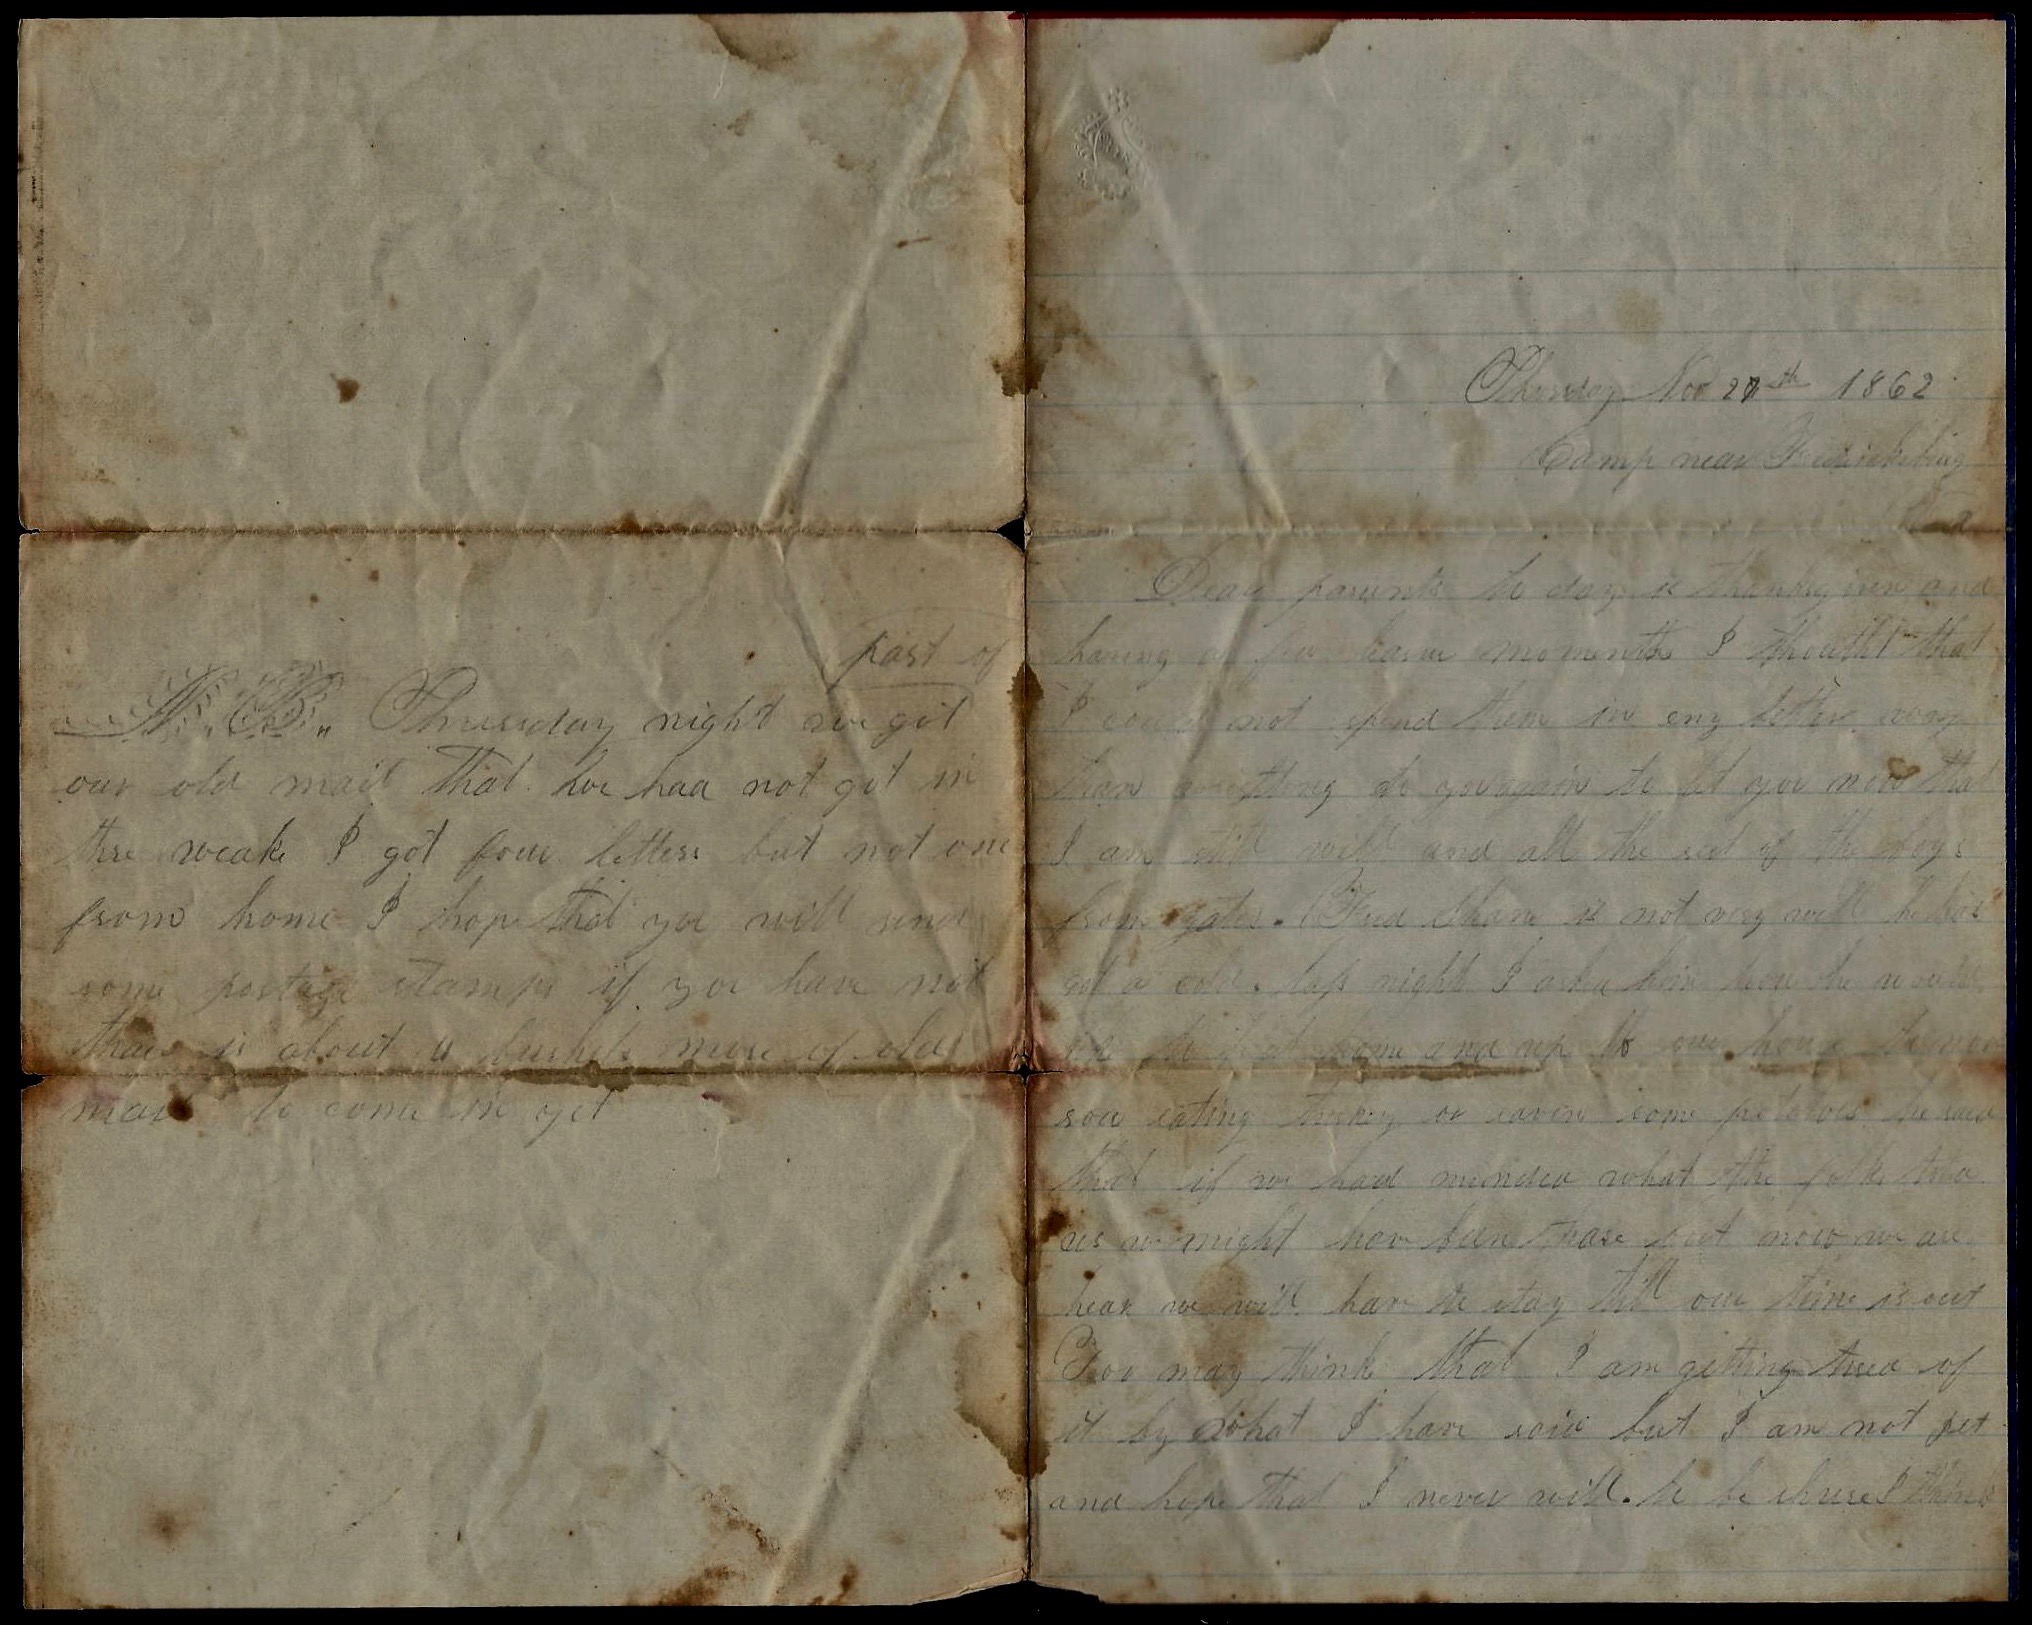 Thursday Nov 27th 1862
Camp near Fredricksburg
Va
Dear parents to day is thanksgiven and
having a few leasure moments I thoutht that
I could not spend them in eny better way
than writting to you again to let you now that
I am still well and all the rest of the boys
from gates. Fred Shane is not very well he has
got a cold. last night I askd him how he would
like to be at home and up to our house to now
sou eating turkey or eaven some potatoes he said
that if we had minded what the folks told
us we might hav been thare but now we are
hear we will hav to stay till our time is out
You may think that I am getting tired of
it by what I hav said but I am not yet
and hope that I never will. to be shure I think
part of
N. B. Thursday night we got
our old mail that we had not got in
thre weaks I got four letters but not one
from home I hope that you will send
some postage stamps if you have not
thare is about 11 bushels more of old
mail to come in yet